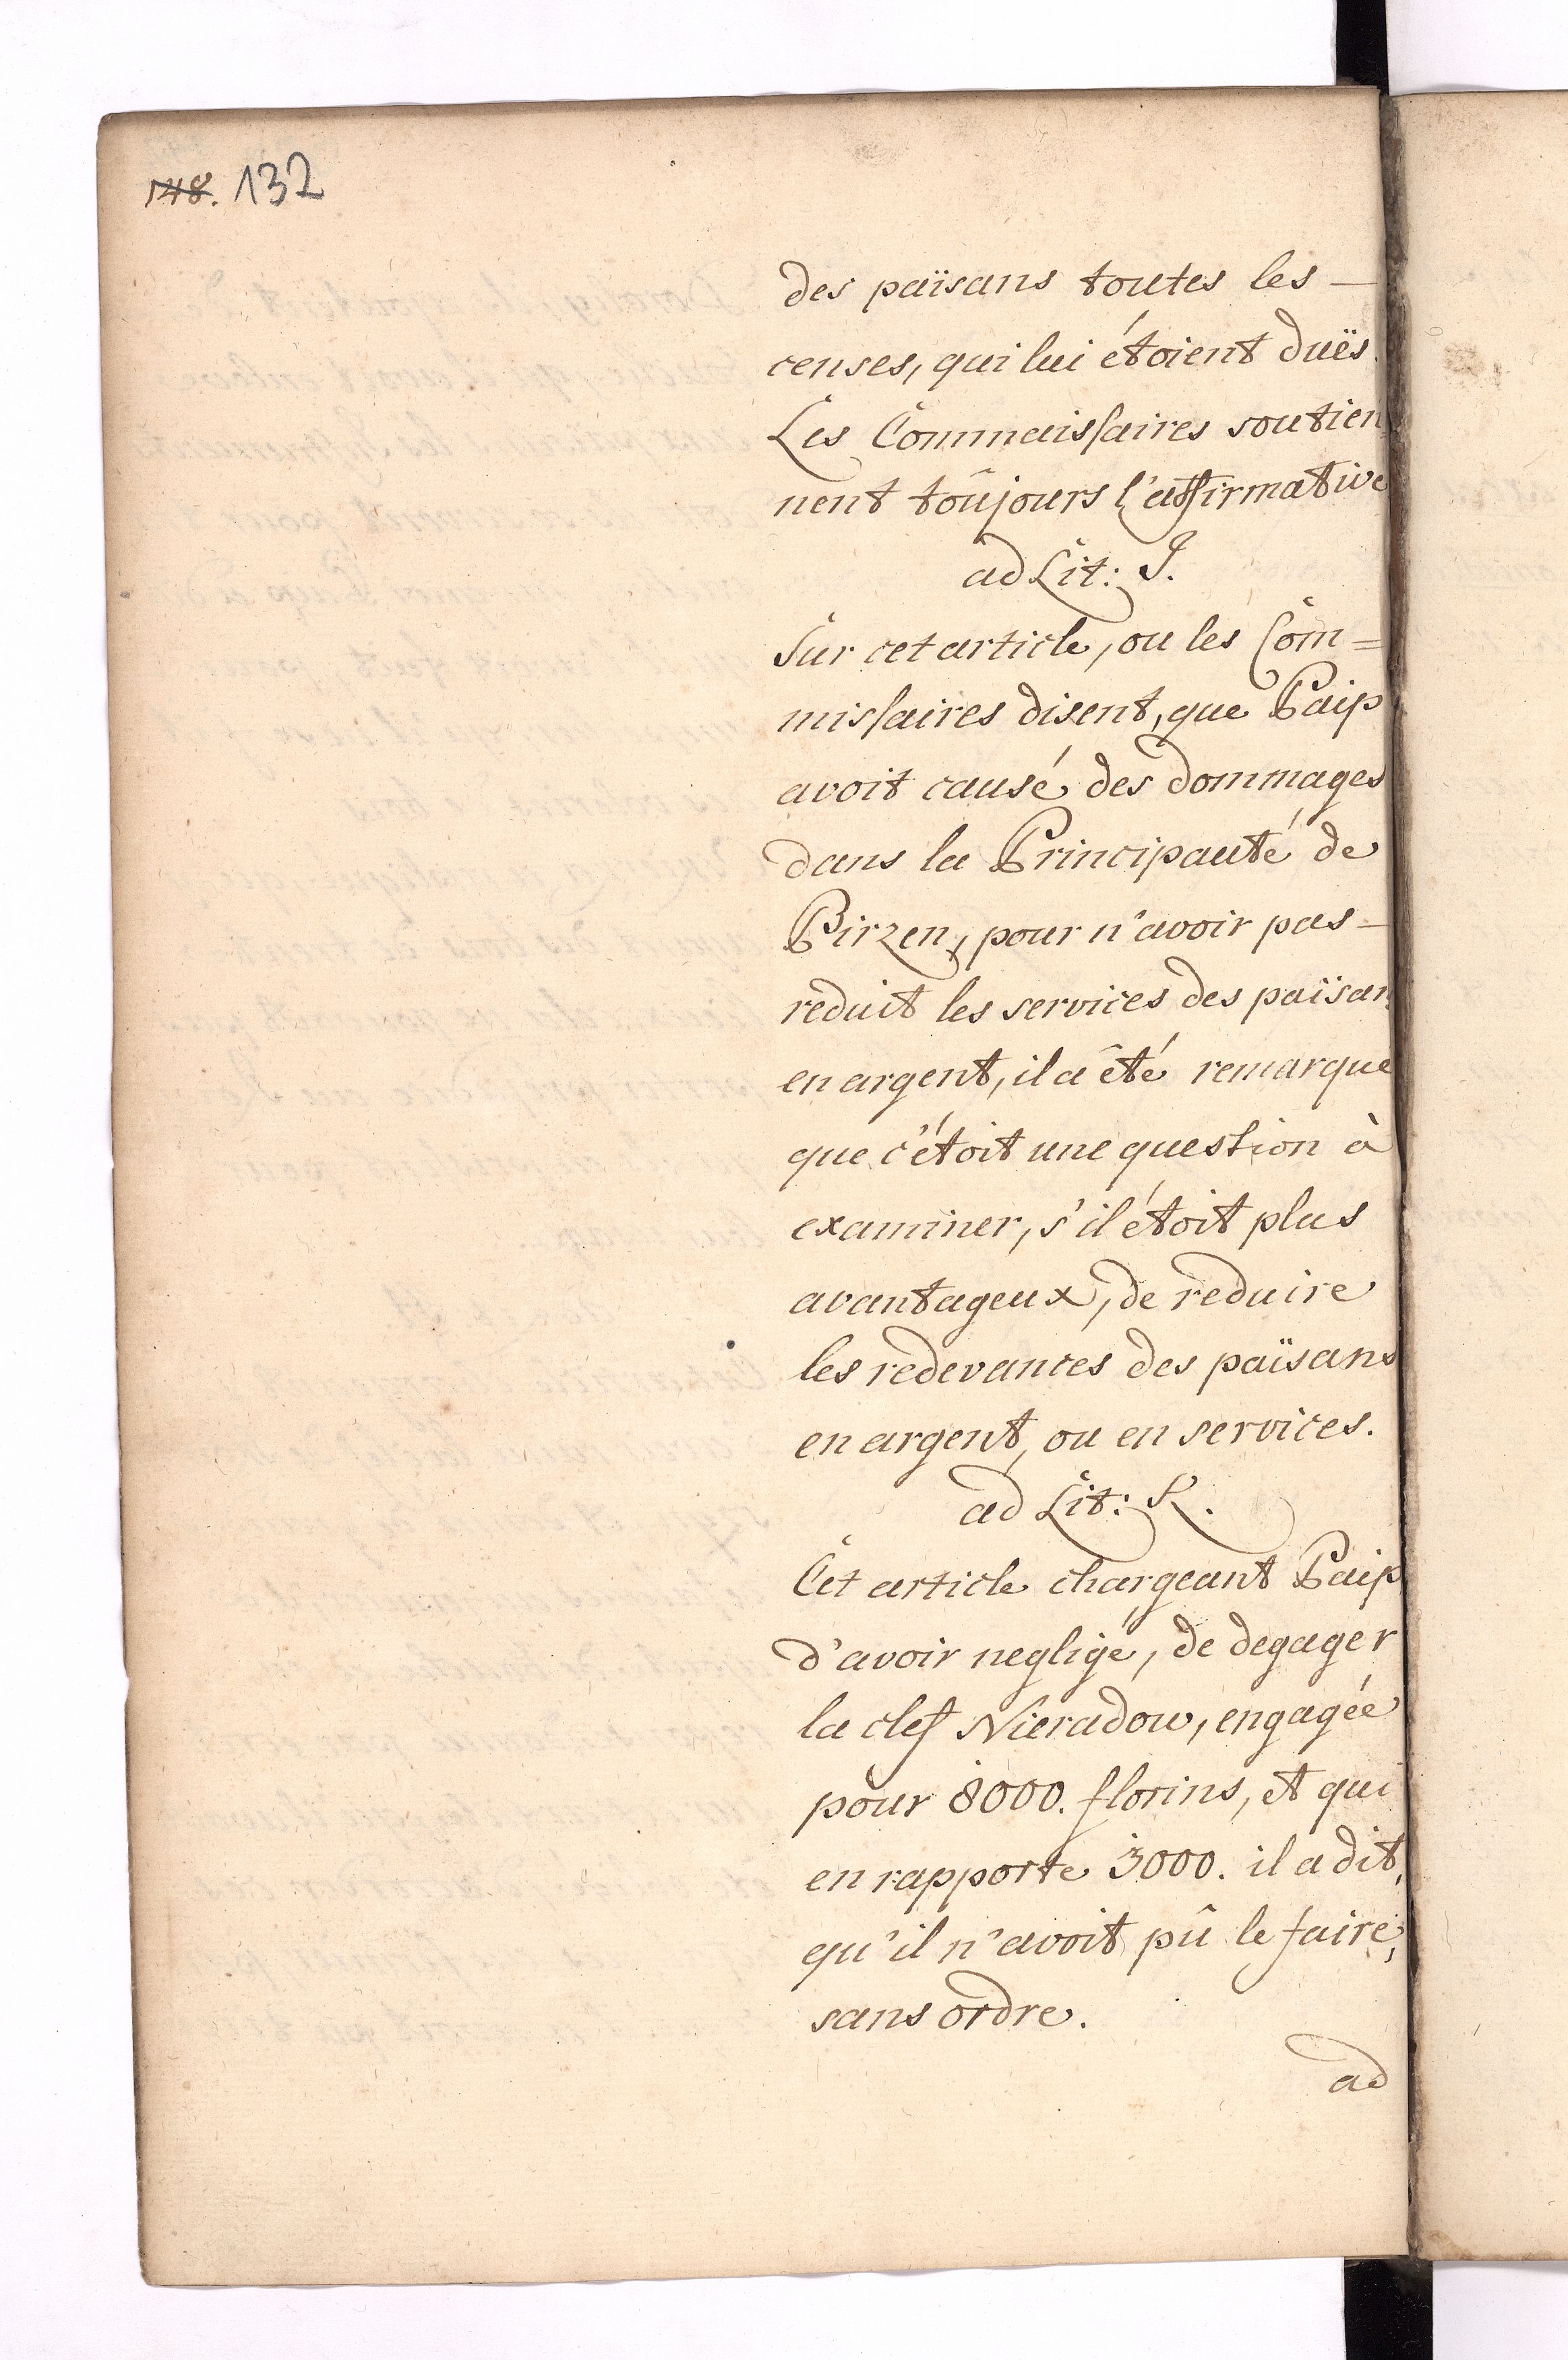 148. 132
des païsans toutes les —
censes, qui lui étoient duës.
Les Commaissaires soutien
nent toûjours l'affirmative
ad Lit: J.
Sur cet article, ou les Com=
missaires disent, que Paip
avoit causé des dommages
dans la Principauté de
Birzen, pour n'avoir pas —
reduit les services des païsan
en argent, il a êté remarque
que c'étoit une question à
examiner, s'il étoit plus
avantageux, de reduire
les redevances des païsans
en argent, ou en services.
ad Lit: K.
Cet article chargeant Paip
d'avoir negligé, de degager
la clef Nieradow, engagée
pour 8000. florins, et qui
en rapporte 3000. il a dit,
qu'il n'avoit pû le faire,
sans ordre.
ad